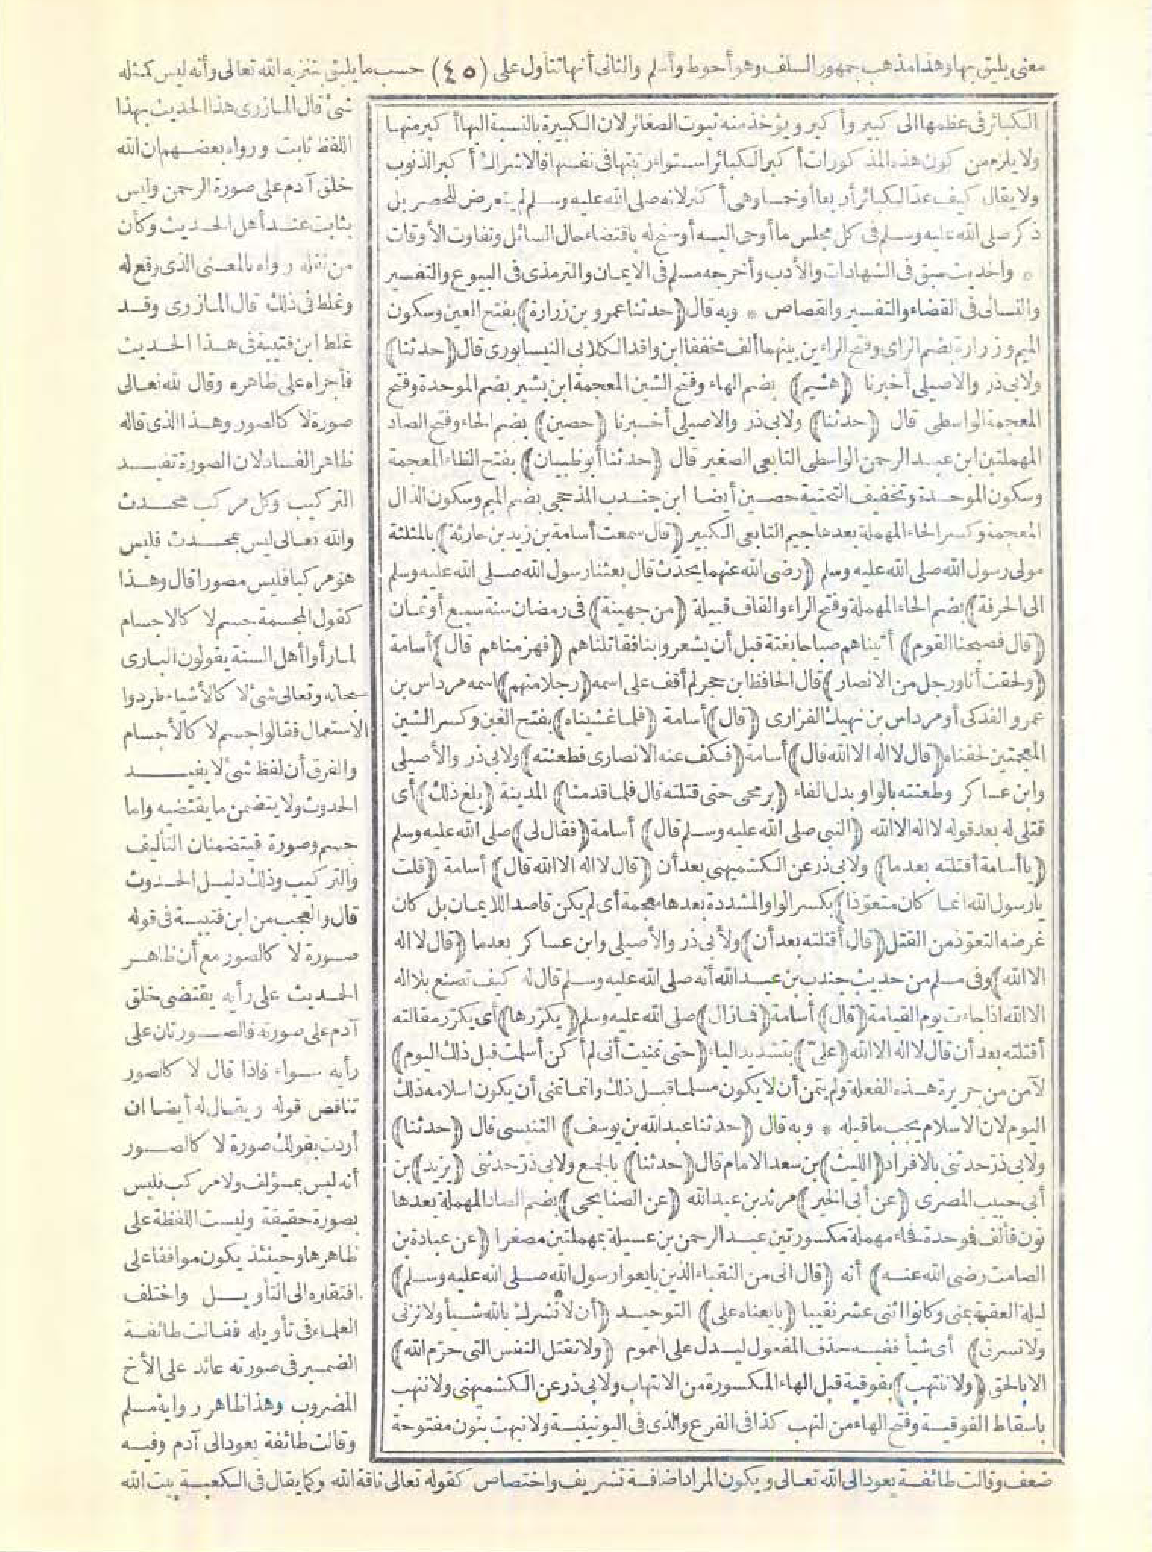 معنى يليق بها وهذا مذهب جمهور السلف وهو أحوط وأسلم والثاني أنها تتأول على (٤٥) حسب ما يليق بتنزيه الله تعالى وأنه ليس كمثله
الكبائر في عظمها الى كبير وأكبر ويؤخذ منه ثبوت الصغائر لان الكبيرة بالنسبة اليها أكبر منها
ولا يلزم من كون هذه المذكورات أكبر الكبائر استواء رتبتها في نفسها فالاشراك أكبر الذنوب
ولا يقال كيف عد الكبائر أربعا أو خمسا وهى أكثر لانه صلى الله عليه وسلم لم يتعرض للحصر بل
ذكر صلى الله عليه وسلم في كل مجلس ما أوحى اليه أو سنح له باقتضاء حال السائل وتفاوت الأوقات
* والحديث سبق في الشهادات والأدب وأخرجه مسلم في الايمان والترمذى في البيوع والتفسير
والنسائى في القضاء والتفسير والقصاص * وبه قال (حدثنا عمرو بن زرارة) بفتح العين وسكون
الميم وزرارة بضم الزاى وفتح الراءين بينهما ألف مخففا ابن واقد الكلابى النيسابورى قال (حدثنا)
ولابى ذر والاصيلى أخبرنا (هشيم) بضم الهاء وفتح الشين المعجمة ابن بشير بضم الموحدة وفتح
المعجمة الواسطى قال (حدثنا) ولابى ذر والاصيلى أخبرنا (حصين) بضم الحاء وفتح الصاد
المهملتين ابن عبد الرحمن الواسطى التابعى الصغير قال (حدثنا أبو ظبيان) بفتح الظاء المعجمة
وسكون الموحدة وتخفيف التحتية حصين أيضا ابن جندب المذحجى بضم الميم وسكون الذال
المعجمة وكسر الحاء المهملة بعدها جيم التابعى الكبير (قال سمعت أسامة بن زيد بن حارثة) بالمثلثة
مولى رسول الله صلى الله عليه وسلم (رضى الله عنهما يحدث قال بعثنا رسول الله صلى الله عليه وسلم
الى الحرقة) بضم الحاء المهملة وفتح الراء والقاف قبيلة (من جهينة) في رمضان سنة سبع أو ثمان
(قال فصبحنا القوم) أتيناهم صباحا بغتة قبل أن يشعروا بنا فقاتلناهم (فهزمناهم قال) أسامة
(ولحقت أنا ورجل من الانصار) قال الحافظ ابن حجر لم أقف على اسمه (رجلا منهم) اسمه مرداس بن
عمرو الفدكى أو مرداس بن نهيك الفزارى (قال) أسامة (فلما غشيناه) بفتح الغين وكسر الشين
المعجمتين لحقناه (قال لا اله الا الله قال) أسامة (فكف عنه الانصارى فطعنته) ولابى ذر والأصيلى
وابن عساكر وطعنته بالواو بدل الفاء (برمحى حتى قتلته قال فلما قدمنا) المدينة (بلغ ذلك) أى
قتلى له بعد قوله لا اله الا الله (النبى صلى الله عليه وسلم قال) أسامة (فقال لى) صلى الله عليه وسلم
(يا أسامة أقتلته بعد ما) ولابى ذر عن الكشميهنى بعد أن (قال لا اله الا الله قال) أسامة (قلت
يا رسول الله انما كان متعوذا) بكسر الواو المشددة بعدها معجمة أى لم يكن قاصدا للايمان بل كان
غرضه التعوذ من القتل (قال أقتلته بعد أن) ولأبى ذر والأصيلى وابن عساكر بعدما (قال لا اله
الا الله) وفى مسلم من حديث جندب بن عبد الله أنه صلى الله عليه وسلم قال له كيف تصنع بلا اله
الا الله اذا جاءت يوم القيامة (قال) أسامة (فما زال) صلى الله عليه وسلم (يكررها) أى يكرر مقالته
أقتلته بعد أن قال لا اله الا الله (علىّ) بتشديد الياء (حتى تمنيت أنى لم أكن أسلمت قبل ذلك اليوم)
لآمن من جريرة هذه الفعلة ولم يتمن أن لا يكون مسلما قبل ذلك وانما تمنى أن يكون اسلامه ذلك
اليوم لان الاسلام يجب ما قبله * وبه قال (حدثنا عبد الله بن يوسف) التنيسى قال (حدثنا)
ولابى ذر حدثنى بالافراد (الليث) بن سعد الامام قال (حدثنا) بالجمع ولابى ذر حدثنى (يزيد) بن
أبى حبيب المصرى (عن أبى الخير) مرثد بن عبد الله (عن الصنابحى) بضم الصاد المهملة بعدها
نون فألف فموحدة فحاء مهملة مكسورتين عبد الرحمن بن عسيلة بمهملتين مصغرا (عن عبادة بن
الصامت رضى الله عنه) أنه (قال انى من النقباء الذين بايعوا رسول الله صلى الله عليه وسلم)
ليلة العقبة بمنى وكانوا اثنى عشر نقيبا (بايعناه على) التوحيد (أن لا نشرك بالله شيأ ولا نزنى
ولا نسرق) أى شيأ ففيه حذف المفعول ليدل على العموم (ولا نقتل النفس التى حرم الله)
الا بالحق (ولا ننتهب) بفوقية قبل الهاء المكسورة من الانتهاب ولابى ذر عن الكشميهنى ولا ننهب
باسقاط الفوقية وفتح الهاء من النهب كذا فى الفرع والذى فى اليونينية ولا نبهت بنون مفتوحة
شئ قال المازرى هذا الحديث بهذا
اللفظ ثابت ورواه بعضهم ان الله
خلق آدم على صورة الرحمن وليس
بثابت عند أهل الحديث وكأن
من نقله رواه بالمعنى الذى وقع له
وغلط فى ذلك قال المازرى وقد
غلط ابن قتيبة فى هذا الحديث
فأجراه على ظاهره وقال لله تعالى
صورة لا كالصور وهذا الذى قاله
ظاهر الفساد لان الصورة تفيد
التركيب وكل مركب محدث
والله تعالى ليس بمحدث فليس
هو مركبا فليس مصورا قال وهذا
كقول المجسمة جسم لا كالاجسام
لما رأوا أهل السنة يقولون البارى
سبحانه وتعالى شئ لا كالأشياء طردوا
الاستعمال فقالوا جسم لا كالأجسام
والفرق أن لفظ شئ لا يفيد
الحدوث ولا يتضمن ما يقتضيه واما
جسم وصورة فيتضمنان التأليف
والتركيب وذلك دليل الحدوث
قال والعجب من ابن قتيبة فى قوله
صورة لا كالصور مع أن ظاهر
الحديث على رأيه يقتضى خلق
آدم على صورته فالصورتان على
رأيه سواء فاذا قال لا كالصور
تناقض قوله ويقال له أيضا ان
أردت بقولك صورة لا كالصور
أنه ليس بمؤلف ولا مركب فليس
بصورة حقيقة وليست اللفظة على
ظاهرها وحينئذ يكون موافقا على
افتقاره الى التأويل واختلف
العلماء فى تأويله فقالت طائفة
الضمير فى صورته عائد على الأخ
المضروب وهذا ظاهر رواية مسلم
وقالت طائفة يعود الى آدم وفيه
ضعف وقالت طائفة يعود الى الله تعالى ويكون المراد اضافة تشريف واختصاص كقوله تعالى ناقة الله وكما يقال فى الكعبة بيت الله